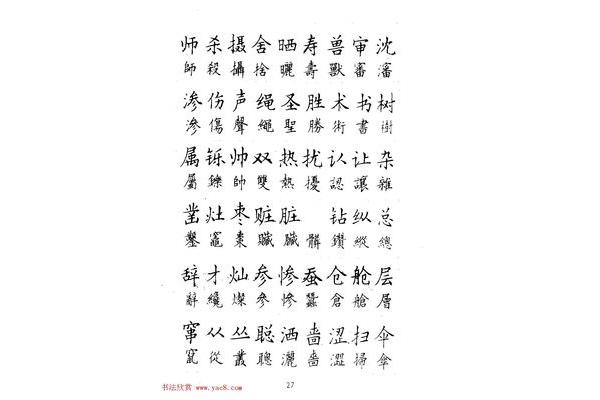 师杀摄舍晒寿兽审沈
師殺攝捨曬壽獸審瀋
渗伤声绳圣胜术书树
滲傷聲繩聖勝術書樹
属铄帅双热扰认让杂
屬鑠帥雙熱擾認讓雜
凿灶枣赃脏 钻纵总
鑿竈棗贜臟髒鑽縱總
辞才灿参惨蚕仓舱层
辭纔燦參慘蠶倉艙層
窜从丛聪洒啬涩扫伞
竄從叢聰灑嗇澀掃傘
书法欣赏 www.yac8.com
27